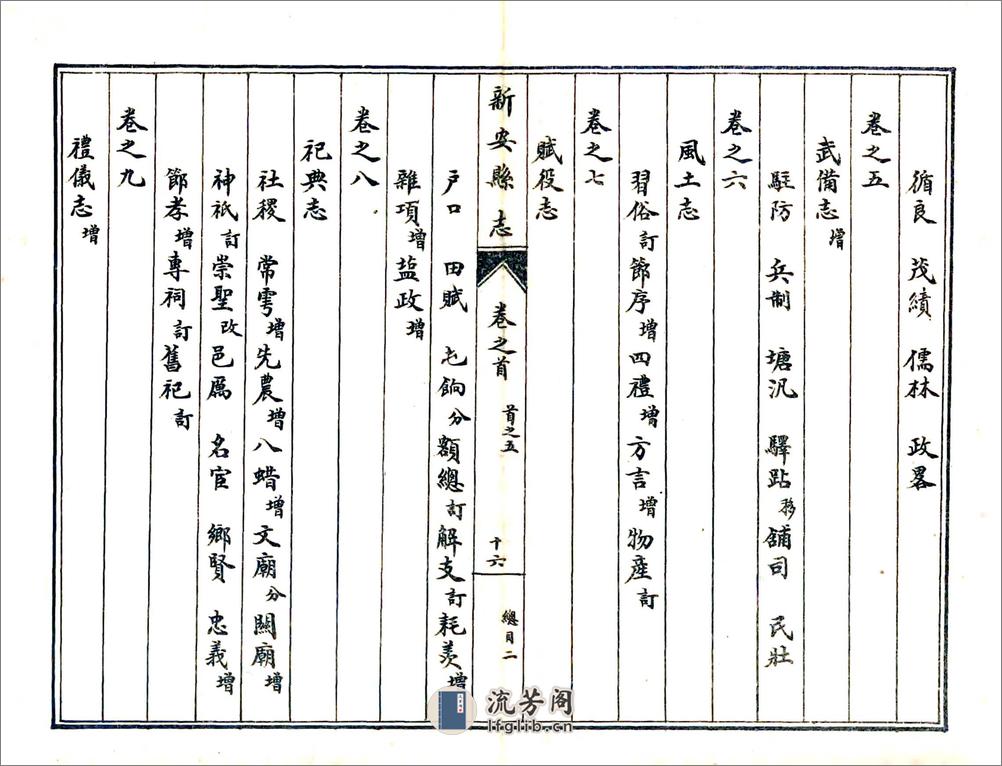 循良　茂績　儒林　政畧
卷之五
武備志增
駐防　兵制　塘汛　驛跕移舖司　民壯
卷之六
風土志
習俗訂節序增四禮增方言增物產訂
卷之七
賦役志
新安縣志　卷之首　首之五　十六　總目二
户口　田賦　屯餉分額總訂解支訂耗羨增
雜項增盐政增
卷之八
祀典志
社稷　常雩增先農增八蜡增文廟分關廟增
神祇訂崇聖改邑厲　名宦　鄉賢　忠義增
節孝增專祠訂舊祀訂
卷之九
禮儀志增
流芳阁
lfglib.cn